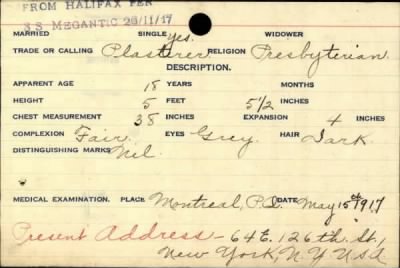 FROM HALIFAX PER
SS MEGANTIC 26/11/17
MARRIED SINGLE Yes. WIDOWER
TRADE OR CALLING Plasterer RELIGION Presbyterian.
DESCRIPTION.
APPARENT AGE 18 YEARS MONTHS
HEIGHT 5 FEET 5 1/2 INCHES
CHEST MEASUREMENT 35 INCHES EXPANSION 4 INCHES
COMPLEXION Fair. EYES Grey. HAIR Dark.
DISTINGUISHING MARKS Nil.
MEDICAL EXAMINATION. PLACE Montreal, P.Q. DATE May 15th 1917
Present Address - 64 E. 126th St.,
New York, N.Y. U.S.A.